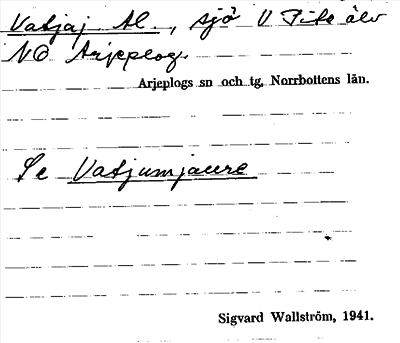 Vatjaj Al., sjö V Pite älv
NO Arjeplog.
Arjeplogs sn och tg, Norrbottens län.
Se Vatjumjaure
Sigvard Wallström, 1941.